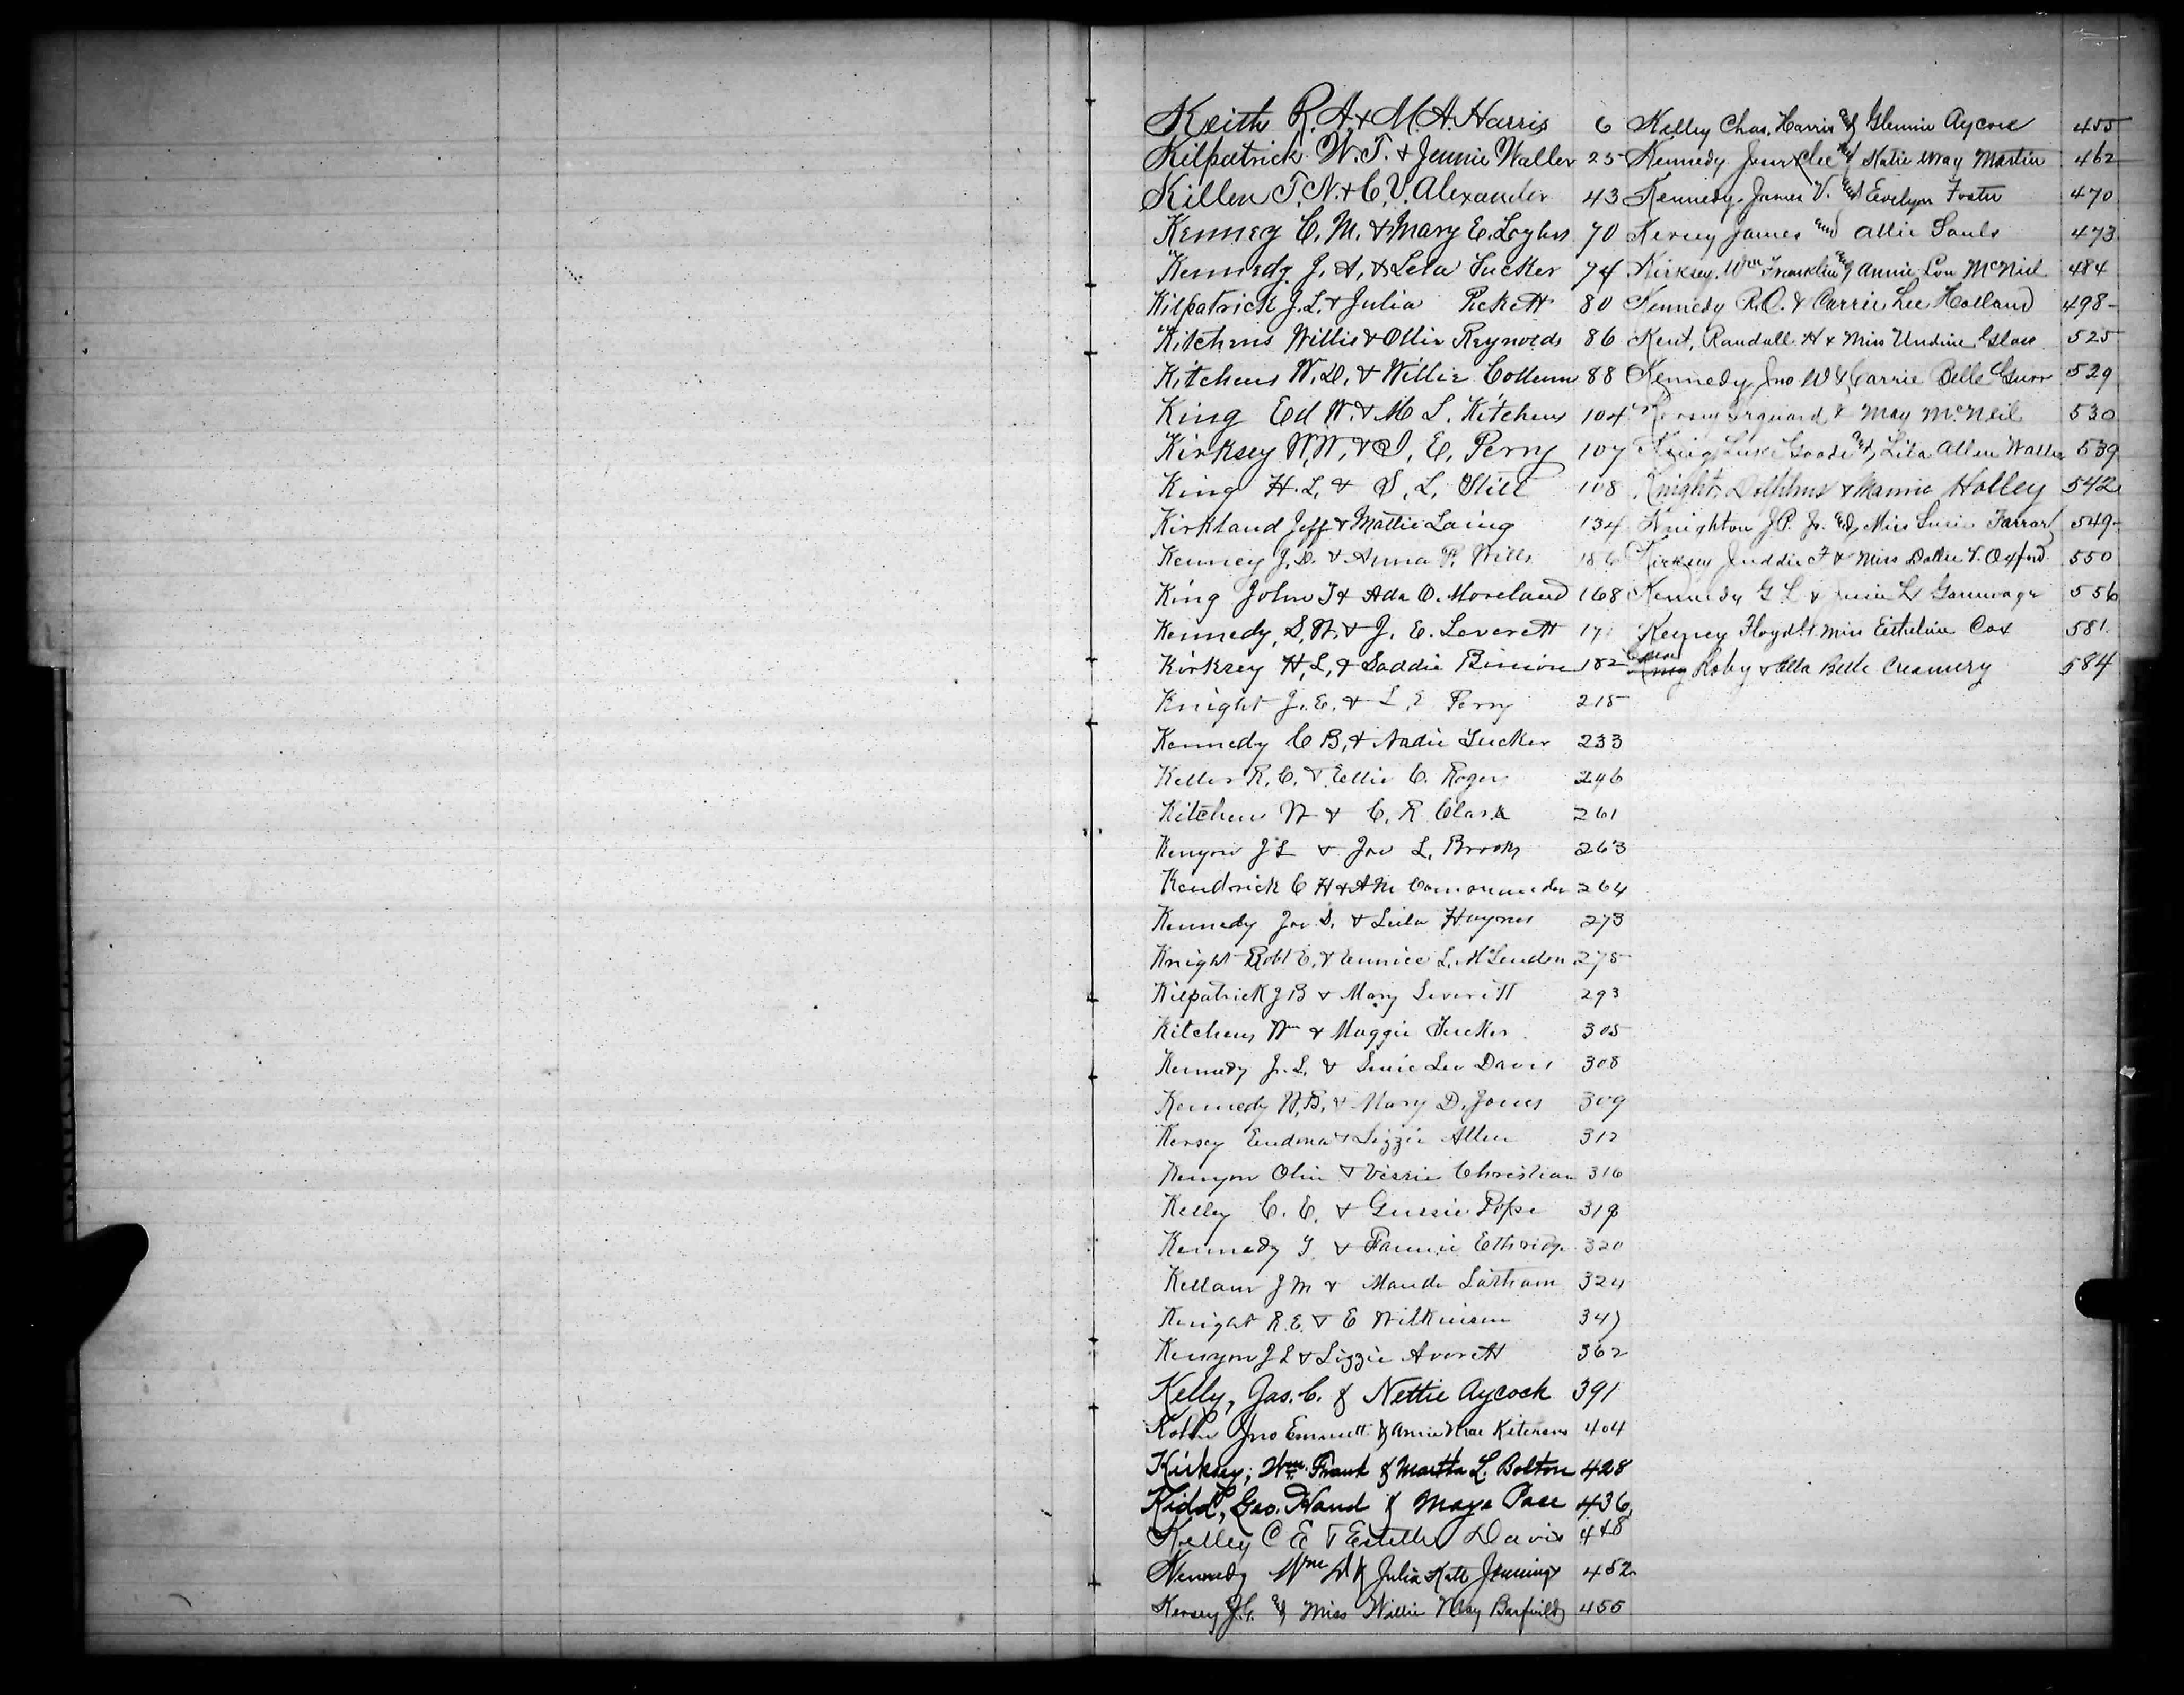 Keith R. A. & M. A. Harris 6
Kilpatrick W. T. & Jennie Waller 25
Killen T. N. & C. V. Alexander 43
Kenney C. M. & Mary E. 70
Kennedy J. A. & Lela Tucker 74
Kilpatrick J. L. & Julia Pickett 80
Kitchens Willis & Ollie Reynolds 86
Kitchens W. D. & Willie Collum 88
King Ed W. & M L. Kitchens 104
Kirksey W. W. & I. E. Perry 107
King H. L. & S. L. Still 108
Kirkland Jeff & Mattie Laing 134
Kenney J. D. & Anna P. Wills
King John T & Ada O. Moreland 168
Kennedy, S. W. & J. E. Leverett
Kirksey H. L. & Saddie Binion 182
Knight J. E. & L. E Perry 215
Kennedy C B. & Nadie Tucker 233
Keller R. C. & Eellie C. Rogers 246
Kitchens W & C. R Clark 261
Kenyon J L & L. Brooks 263
Kendrick C H & A M Commander 264
Kennedy Joe D. & Lula Haynes 273
Knight Robt E. & Eunice L. McLendon 275
Kilpatrick J B & Mary Leveritt 293
Kitchens Wm & Maggie Tucker 305
Kennedy J. L. & Lee Davis 308
Kennedy W. B. & Mary D. Jones 309
Kersey & Lizzie Allen 312
Kenyon Olin & Christian 316
Kelley C. E. & Gussie Pope 319
Kennedy & Fannie Ethridge 320
Kellam J M & Maude Latham 324
Knight R. E. & E Wilkinson 347
Kenyon J L & Lizzie Averett 362
Kelly, Jas. C. & Nettie Aycock 391
Jno Emmett & Annie Mae Kitchens 404
Kirksey, Wm. Frank & Martha L. Bolton 428
Kidd, Geo. Hand & Maye Pace 436
Kelley C E & Estelle Davis 448
Kennedy Wm & Julia Kate Jennings 452
Kersey J. C. and Miss Willie May Barfield 455
Kelley Chas. Harris and Glennie Aycock 455
Kennedy and Katie May Martin 462
Kennedy James V. and Evelyn Foster 470
Kersey James and Allie Sauls 473
Kirksey, Wm Franklin and Annie Lou McNiel 484
Kennedy R. O. & Carrie Lee Holland 498
Kent, Randall H & Miss Undine Glass 525
Kennedy Jno W & Carrie Belle Gunn 529
Kersey & May McNeil 530
King Luke Goode and Lila Allen Waller 539
Knight & Mamie Holley 542
Knighton J. P. Jr. and Miss Susie Farrar 549
Kirksey Juddie F & Miss Dollie V. Oxford 550
Kennedy G L & L Gammage 556
Floyd & Miss Estheline Cox 581
King Roby & Ella Belle 584